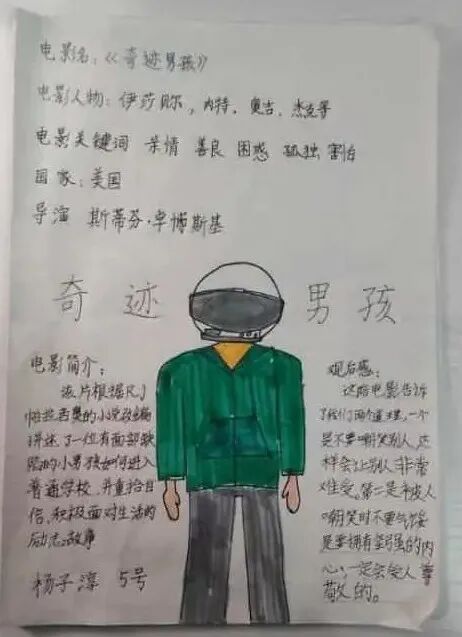 电影名：《奇迹男孩》
电影人物：伊莎贝尔，内特、奥吉、杰克等
电影关键词 亲情 善良 困惑 孤独 割台
国家：美国
导演 斯蒂芬·卓博斯基
奇迹男孩
电影简介：
该片根据R·J
帕拉西奥的小说改编
讲述了一位有面部缺
陷的小男孩如何进入
普通学校，并重拾自
信，积极面对生活的
励志故事
杨子淳 5号
观后感：
这路电影告诉
了我们两个道理，一个
是不要嘲笑别人，这
样会让别人非常
难受。第二是被人
嘲笑时不要气馁
是要拥有坚强的内
心，一定会受人尊
敬的。